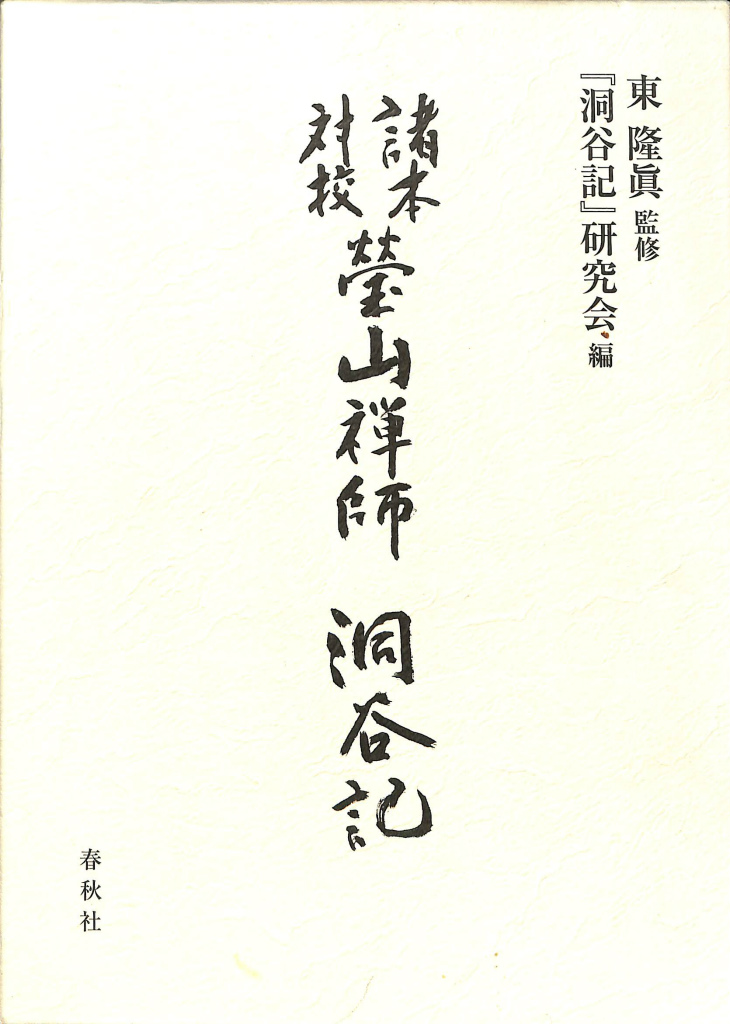 東 隆眞 監修
『洞谷記』研究会・編
諸本
対校
瑩山禅師 洞谷記
春秋社